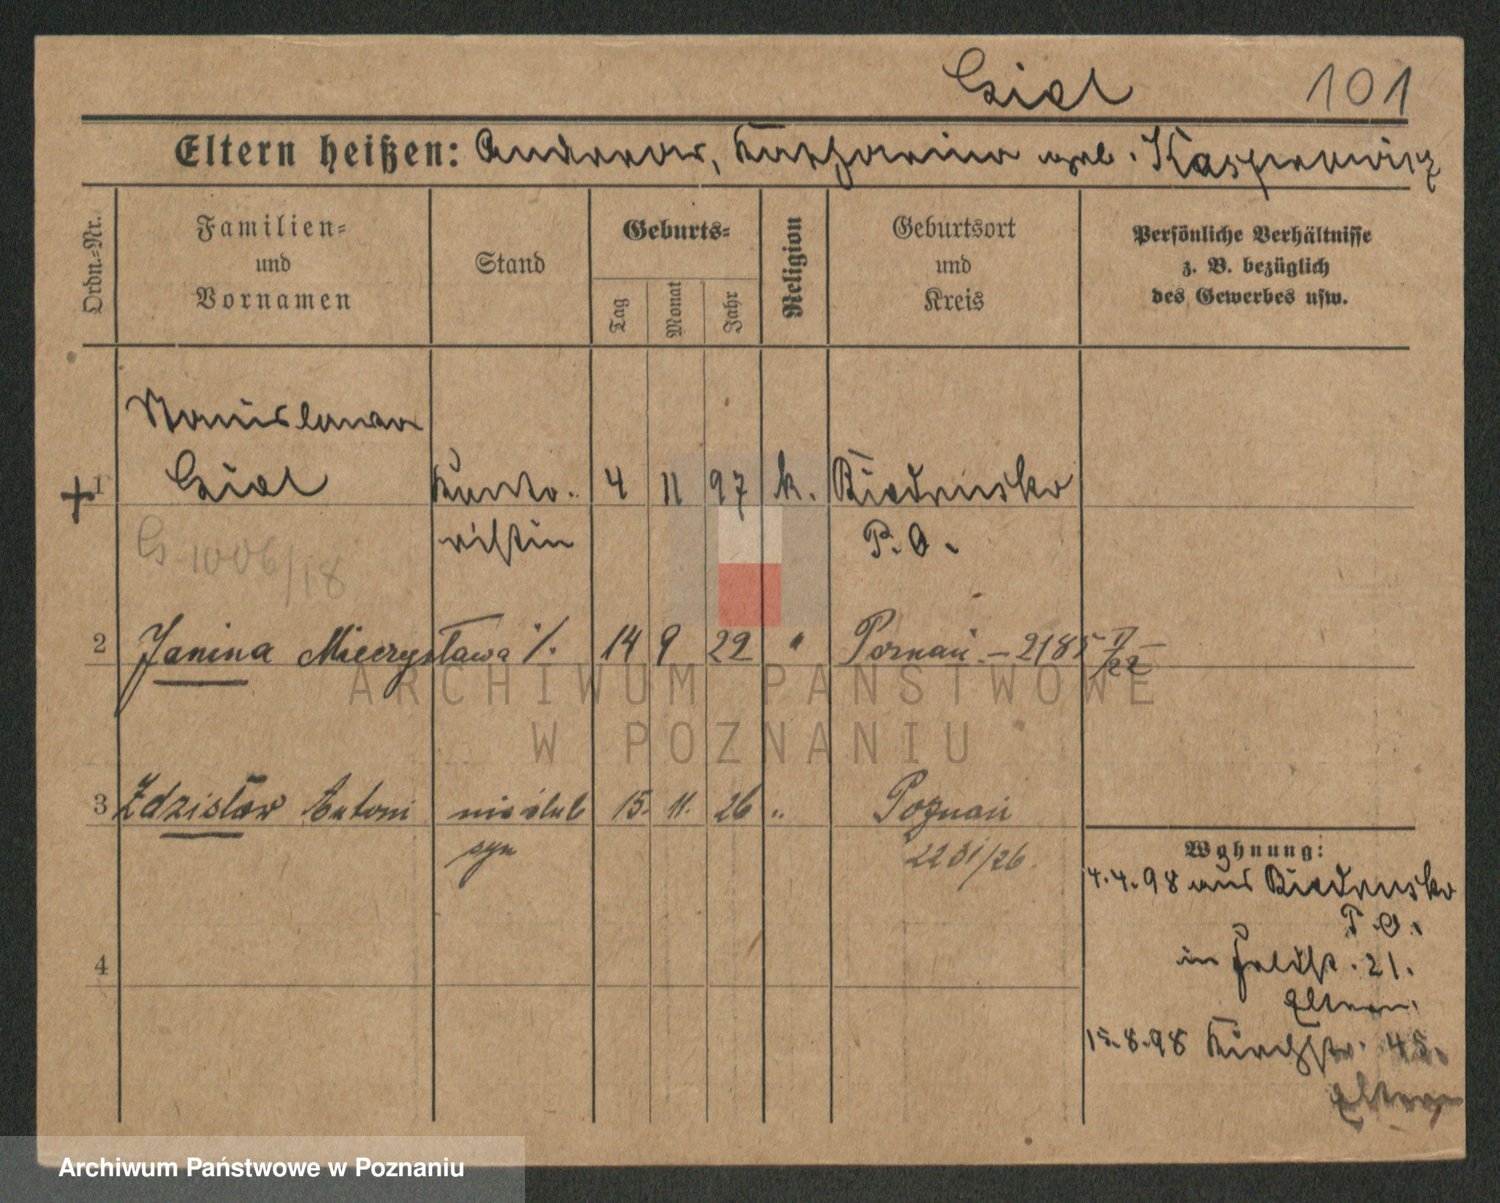 Giel 101
Eltern heißen: Andreas, Katharina geb. Kasprowicz
Ordn.-Nr.
Familien-
und
Vornamen
Stand
Geburts-
Tag
Monat
Jahr
Religion
Geburtsort
und
Kreis
Persönliche Verhältnisse
z. B. bezüglich
des Gewerbes usw.
Stanislawa
1 Giel Konto- 4 11 97 k. Biedrusko
ristin P. O.
G 1006/18
2 Janina Mieczysława 14 9 22 " Poznań - 2185 V/22
3 Zdzisław Antoni nieślub 15. 11. 26 " Poznań
syn 2231/26
Wohnung:
4.4.98 aus Biedrusko
P. O.
in Feldstr. 21.
Eltern.
15.8.98 Kirchstr. 45.
Eltern
4
ARCHIWUM PAŃSTWOWE
W POZNANIU
Archiwum Państwowe w Poznaniu